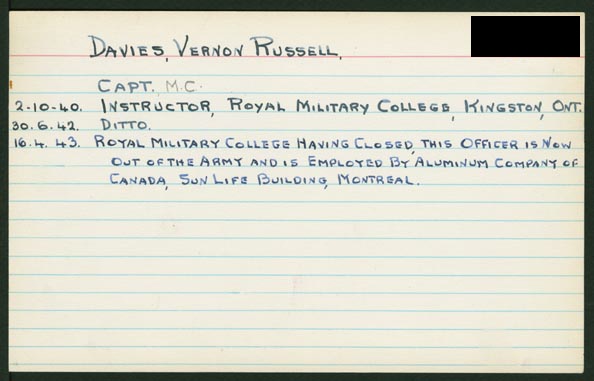 DAVIES, VERNON RUSSELL,
CAPT. M.C.
2-10-40. INSTRUCTOR, ROYAL MILITARY COLLEGE, KINGSTON, ONT.
30.6.42. DITTO.
16.4.43. ROYAL MILITARY COLLEGE HAVING CLOSED, THIS OFFICER IS NOW
OUT OF THE ARMY AND IS EMPLOYED BY ALUMINUM COMPANY OF
CANADA, SUN LIFE BUILDING, MONTREAL.